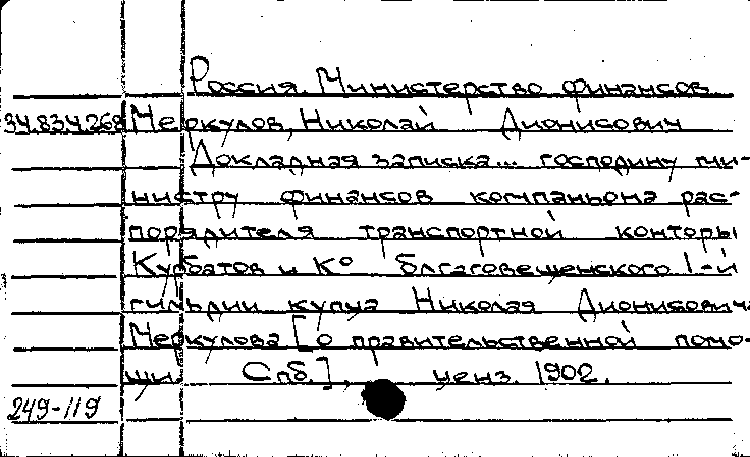 Россия. Министерство финансов
34.834.268 Меркулов, Николай Дионисович
Докладная записка... господину ми-
нистру финансов компаньона рас-
порядителя транспортной конторы
Курбатов и К° благовещенского 1-й
гильдии купца Николая Дионисовича
Меркулова [о правительственной помо-
щи. Спб.], ценз. 1902.
249-119